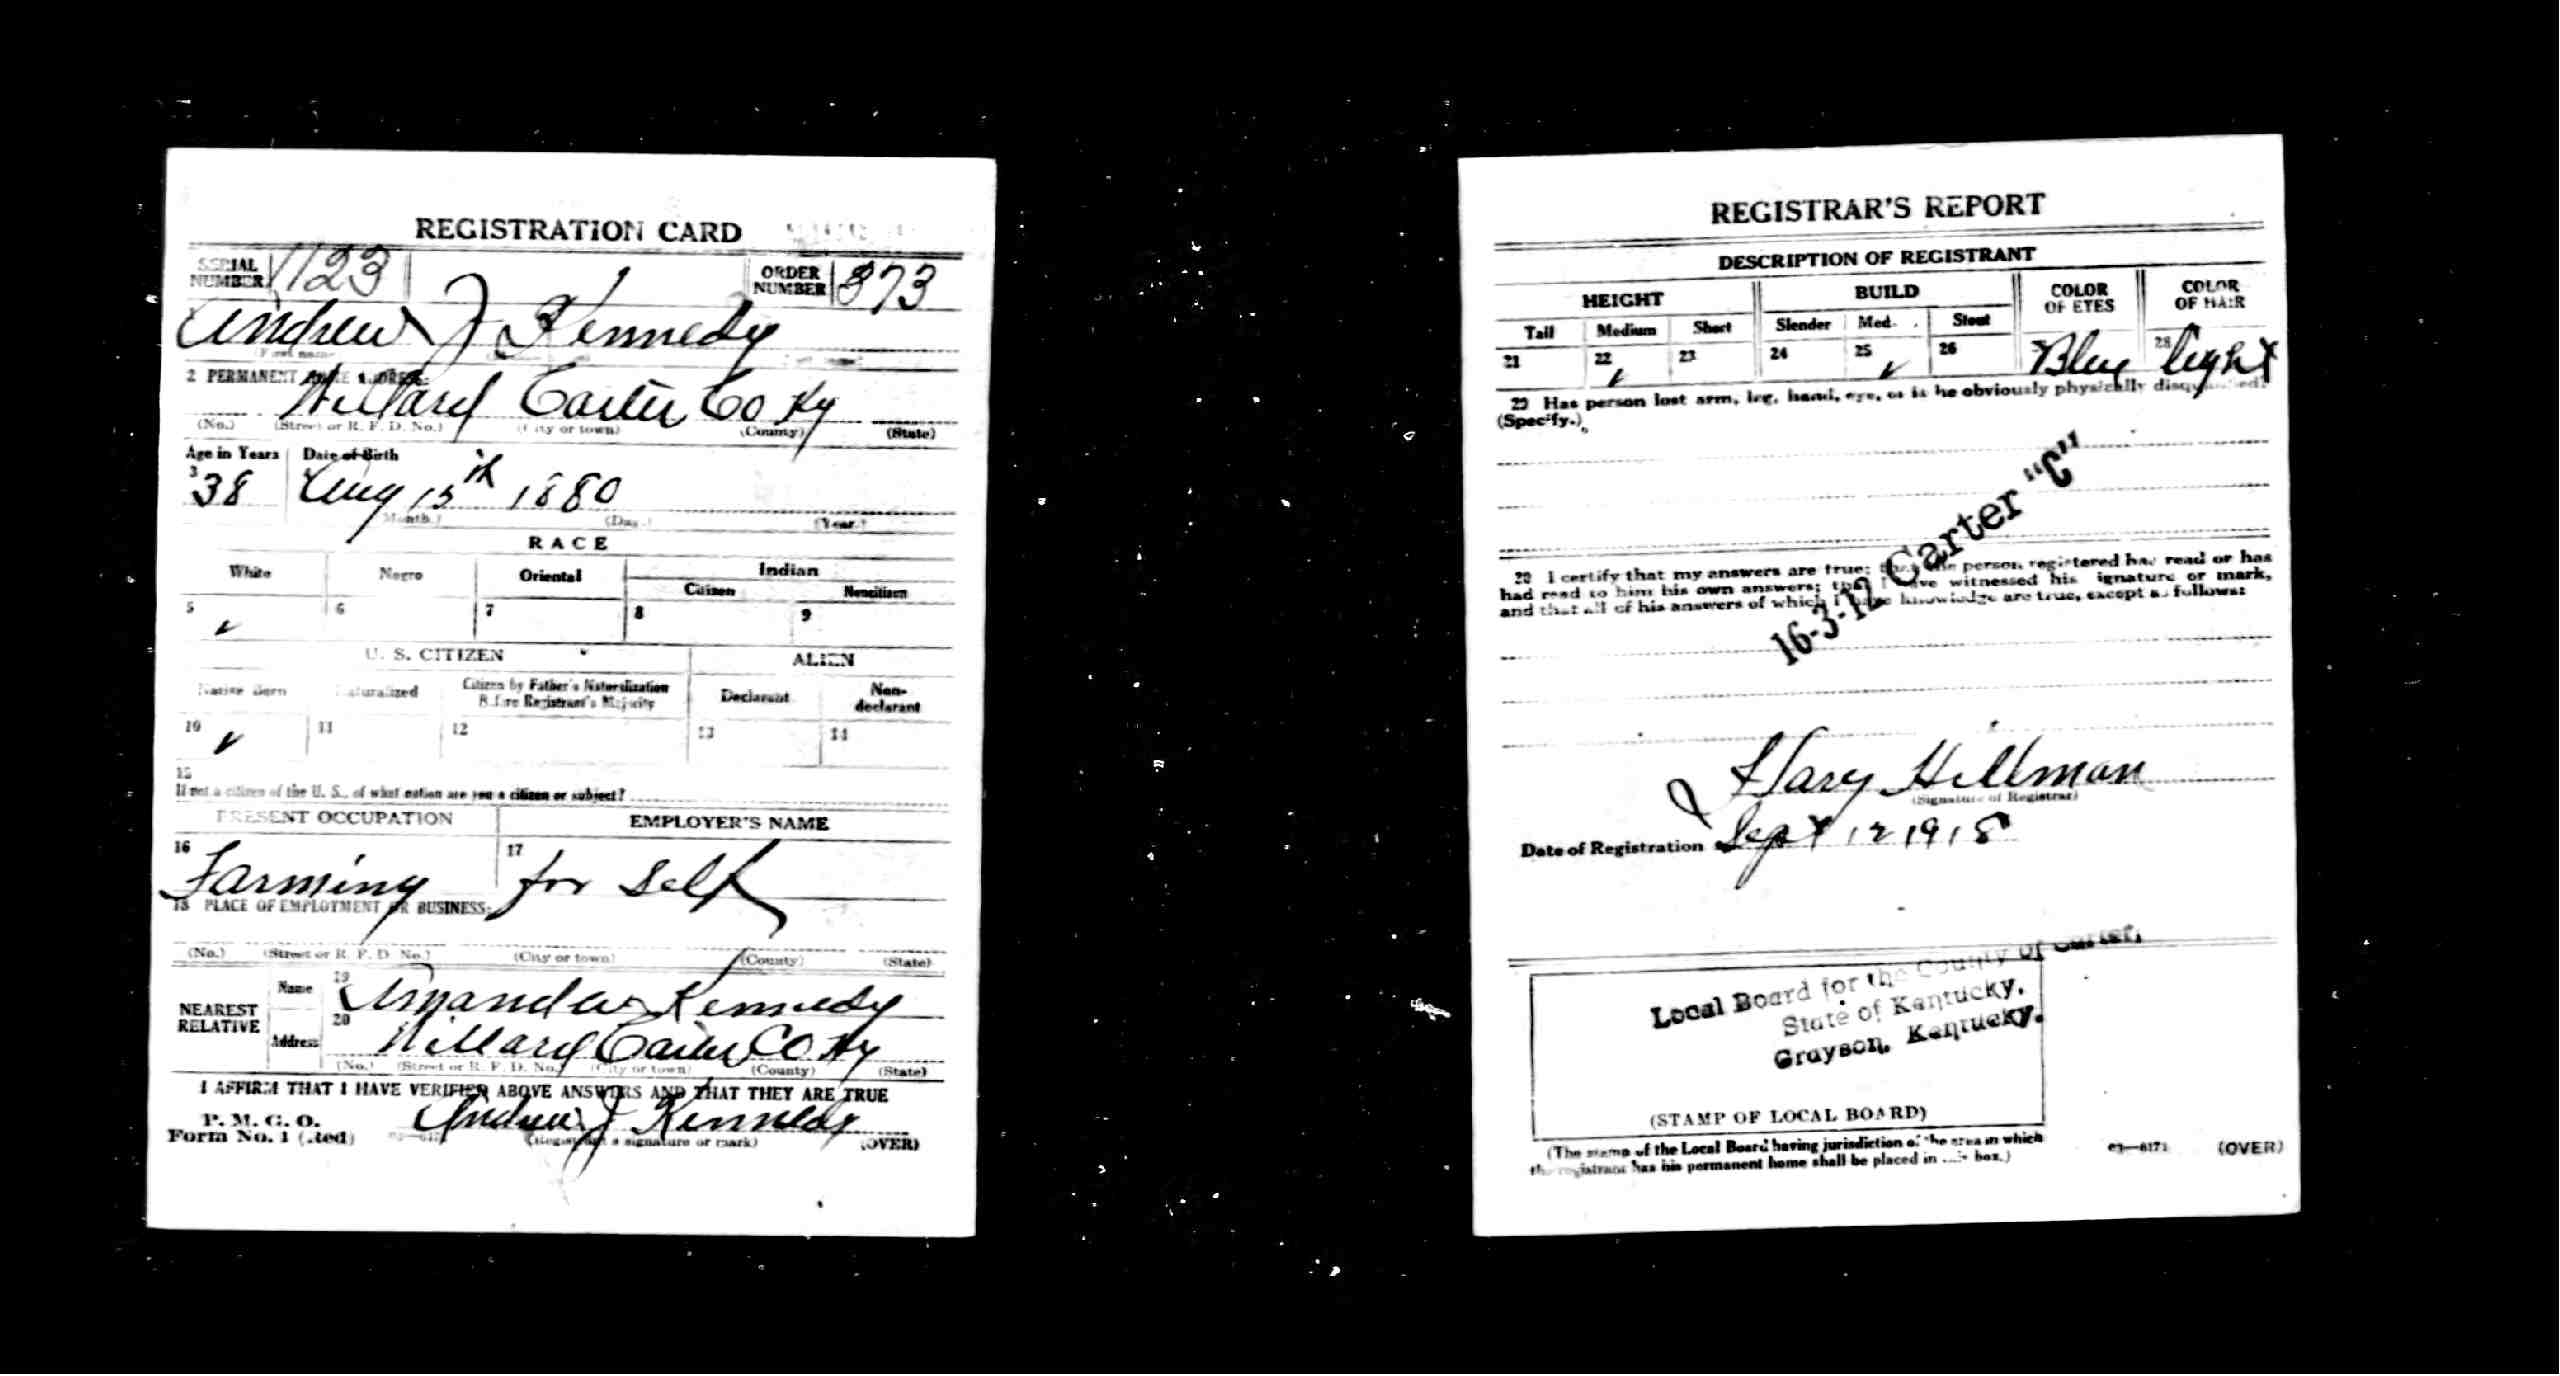 REGISTRATION CARD
SERIAL NUMBER 1123 ORDER NUMBER 373
Andrew J Kennedy
(First name)
2 PERMANENT HOME ADDRESS:
Willard Carter Co Ky
(No.) (Street or R. F. D. No.) (City or town) (County) (State)
Age in Years Date of Birth
3 38 Aug 15th 1880
(Month.) (Day.) (Year.)
RACE
White Negro Oriental Indian
Citizen Noncitizen
5 ✓ 6 7 8 9
U. S. CITIZEN ALIEN
Native Born Naturalized Citizen by Father's Naturalization Before Registrant's Majority Declarant Non-declarant
10 ✓ 11 12 13 14
15
If not a citizen of the U. S., of what nation are you a citizen or subject?
PRESENT OCCUPATION EMPLOYER'S NAME
16 Farming 17 for Self
18 PLACE OF EMPLOYMENT OR BUSINESS:
(No.) (Street or R. F. D. No.) (City or town) (County) (State)
NEAREST RELATIVE
Name 19 Amanda Kennedy
Address 20 Willard Carter Co Ky
(No.) (Street or R. F. D. No.) (City or town) (County) (State)
I AFFIRM THAT I HAVE VERIFIED ABOVE ANSWERS AND THAT THEY ARE TRUE
P. M. G. O.
Form No. 1 (Red) Andrew J Kennedy
(Registrant's signature or mark) (OVER)
REGISTRAR'S REPORT
DESCRIPTION OF REGISTRANT
HEIGHT BUILD COLOR OF EYES COLOR OF HAIR
Tall Medium Short Slender Med. Stout
21 22 ✓ 23 24 25 ✓ 26 Blue 28 light
29 Has person lost arm, leg, hand, eye, or is he obviously physically disqualified?
(Specify.)
16-3-12 Carter "C"
30 I certify that my answers are true; that the person registered has read or has
had read to him his own answers; that I have witnessed his signature or mark,
and that all of his answers of which I have knowledge are true, except as follows:
Hary Hillman
(Signature of Registrar)
Date of Registration Sept 12 1918
Local Board for the County of Carter,
State of Kentucky,
Grayson, Kentucky.
(STAMP OF LOCAL BOARD)
(The stamp of the Local Board having jurisdiction of the area in which
the registrant has his permanent home shall be placed in this box.)
03—6171 (OVER)